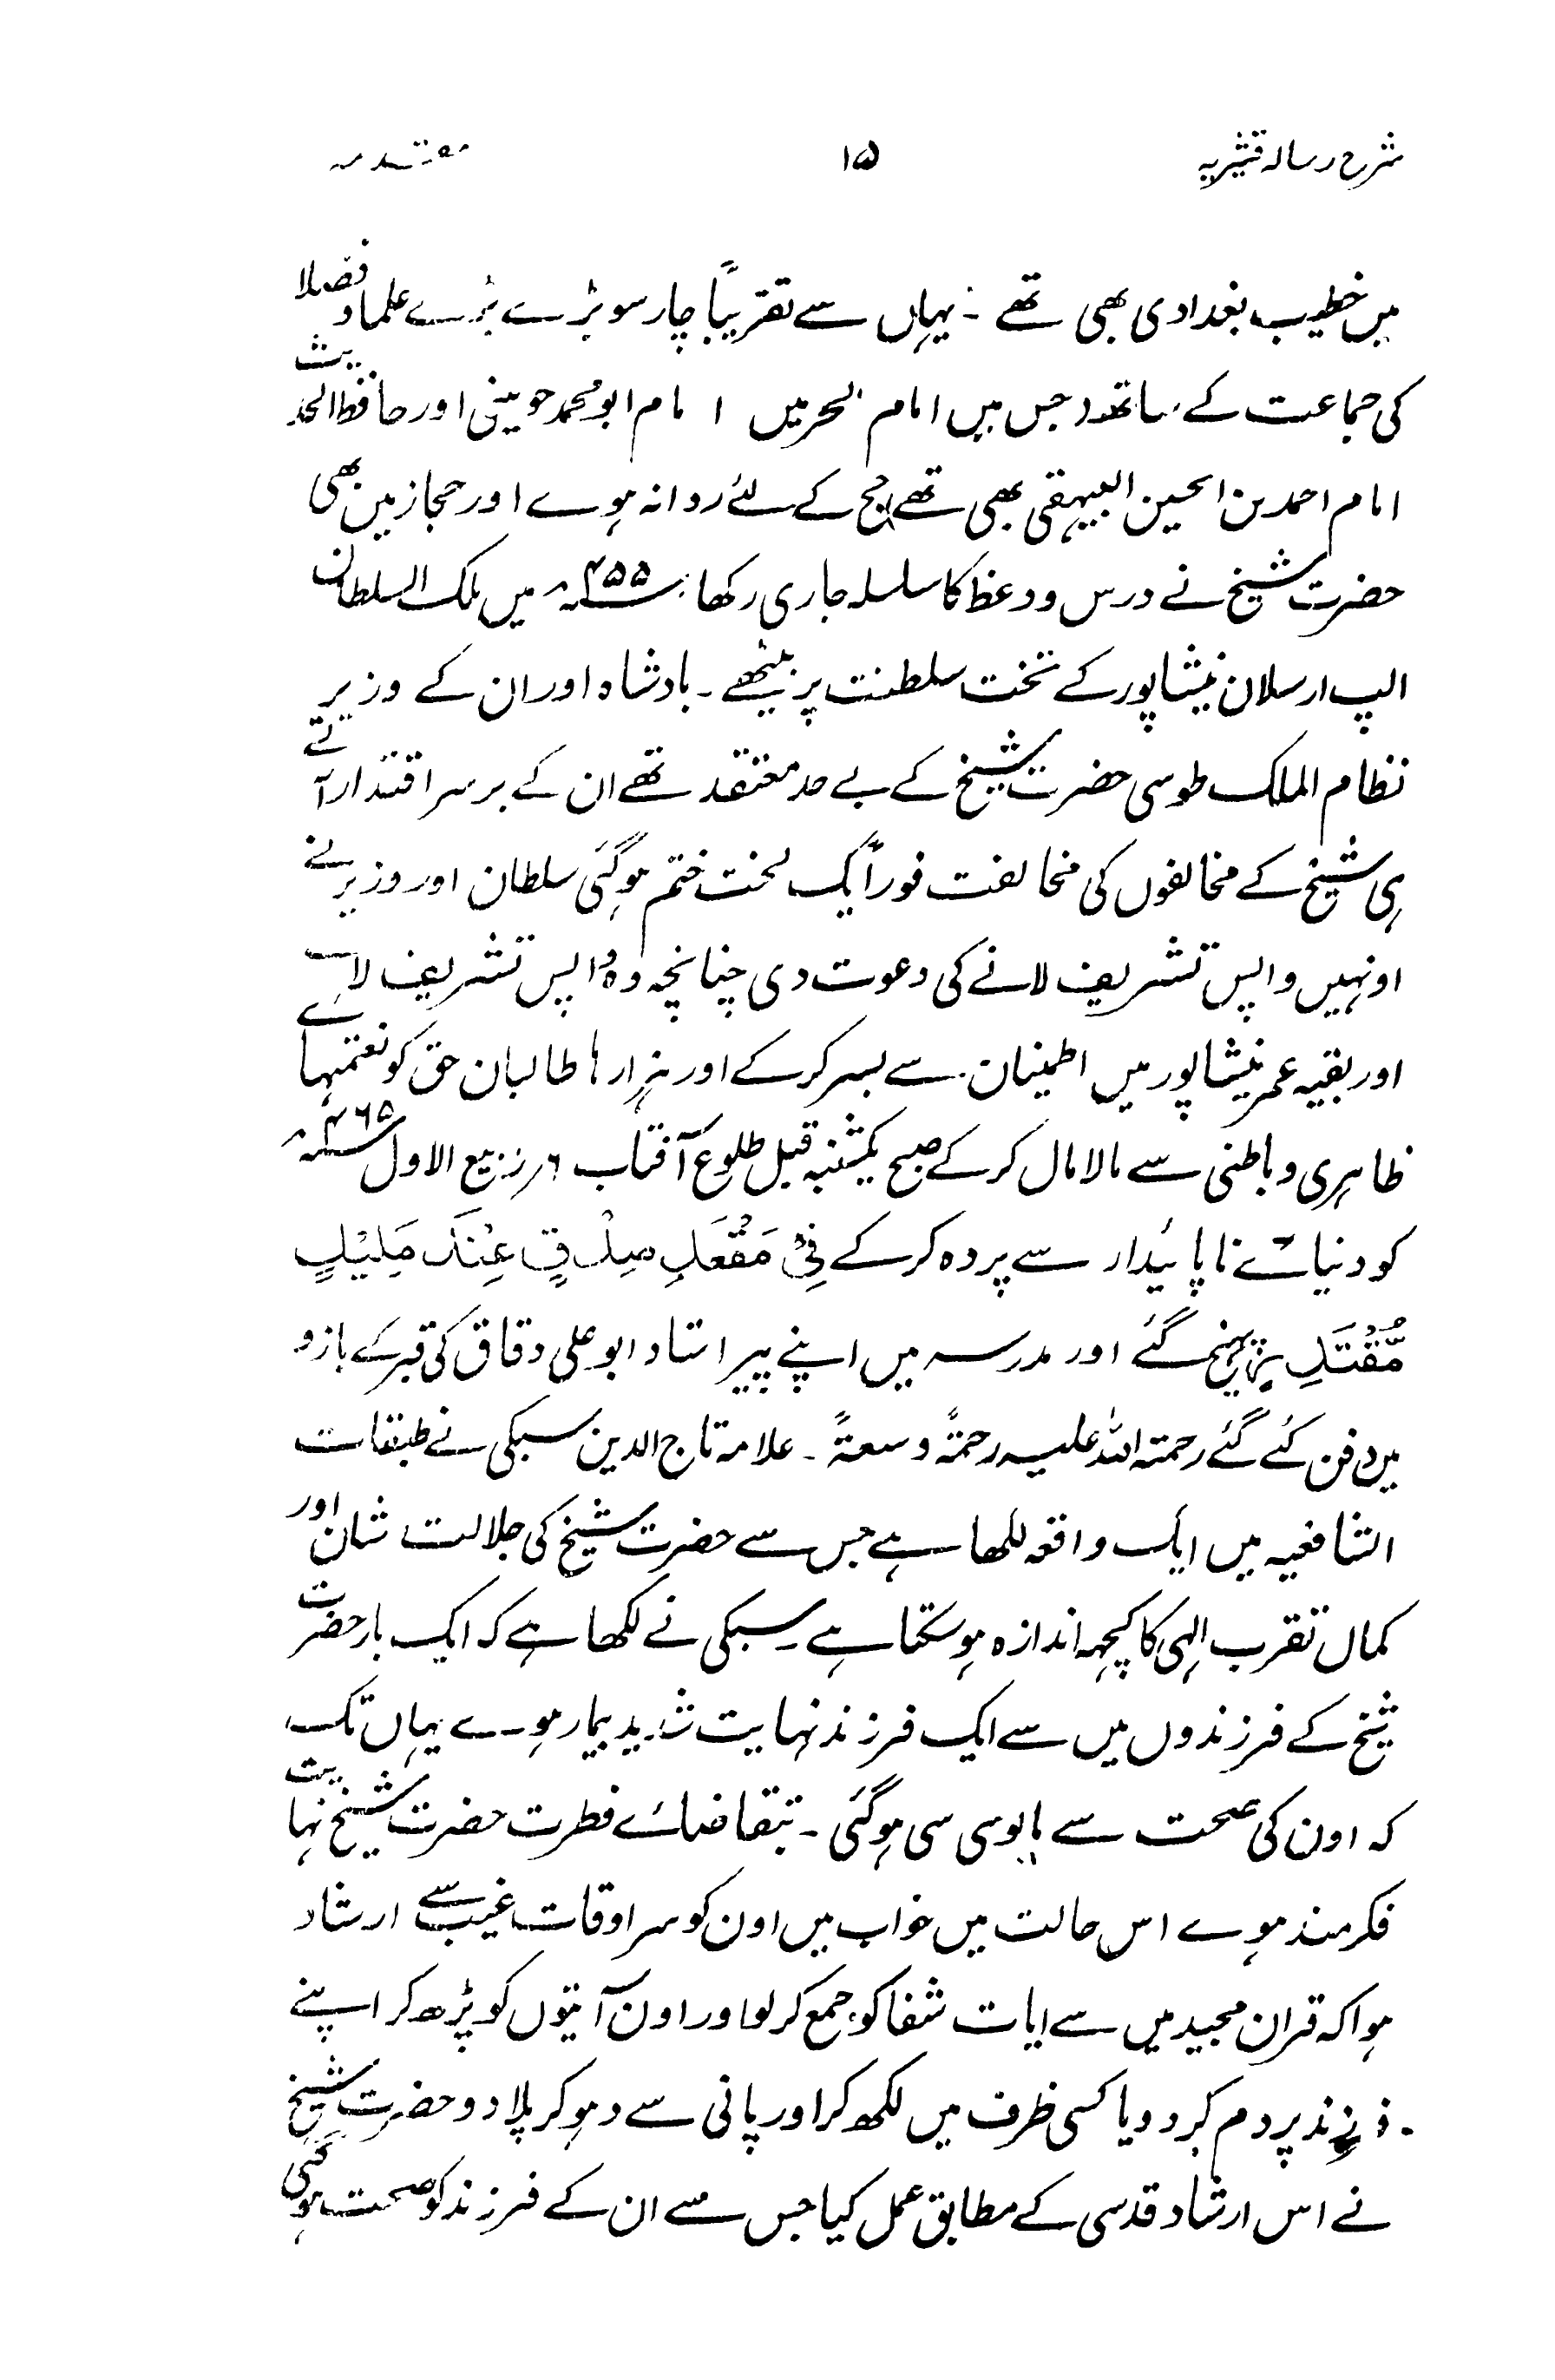 شرح رسالہ قشیریہ ۱۵ مقدمہ
میں خطیب بغدادی بھی تھے ۔ یہاں سے تقریباً چار سو بڑے بڑے علما و فضلا
کی جماعت کے ساتھ (جس میں امام الحرمیں امام ابو محمد جوینی اور حافظ الحدیث
امام احمد بن الحسین البیہقی بھی تھے) حج کے لئے روانہ ہوے اور حجاز میں بھی
حضرت شیخ نے درس و وعظ کا سلسلہ جاری رکھا ۔ ۴۵۵ھ میں ملک السلطان
الپ ارسلان نیشاپور کے تخت سلطنت پر بیٹھے ۔ بادشاہ اور ان کے وزیر
نظام الملک طوسی حضرت شیخ کے بے حد معتقد تھے ان کے برسر اقتدار آتے
ہی شیخ کے مخالفوں کی مخالفت فوراً یک لخت ختم ہو گئی سلطان اور وزیر نے
اونہیں واپس تشریف لانے کی دعوت دی چنانچہ وہ واپس تشریف لائے
اور بقیہ عمر نیشاپور میں اطمینان سے بسر کر کے اور ہزارہا طالبان حق کو نعمتہائے
ظاہری و باطنی سے مالامال کر کے صبح یکشنبہ قبل طلوع آفتاب ۶ ربیع الاول ۴۶۵ھ
کو دنیائے ناپائیدار سے پردہ کر کے فِیْ مَقْعَدِ صِدْقٍ عِنْدَ مَلِیْكٍ
مُّقْتَدِرٍ پہنچ گئے اور مدرسہ میں اپنے پیر استاد ابو علی دقاق کی قبر کے بازو
میں دفن کئے گئے رحمتہ اللہ علیہ رحمۃً وسعۃً ۔ علامہ تاج الدین سبکی نے طبقات
الشافعیہ میں ایک واقعہ لکھا ہے جس سے حضرت شیخ کی جلالت شان اور
کمال تقرب الہی کا کچہہ اندازہ ہو سکتا ہے ۔ سبکی نے لکھا ہے کہ ایک بار حضرت
شیخ کے فرزندوں میں سے ایک فرزند نہایت شدید بیمار ہوے یہاں تک
کہ اون کی صحت سے مایوسی سی ہو گئی ۔ بتقاضائے فطرت حضرت شیخ نہایت
فکرمند ہوے اس حالت میں خواب میں اون کو سراوقات غیب سے ارشاد
ہوا کہ قران مجید میں سے ایات شفا کو جمع کر لو اور اون آیتوں کو پڑھ کر اپنے
فرزند پر دم کر دو یا کسی ظرف میں لکھ کر اور پانی سے دہو کر پلا دو حضرت شیخ
نے اس ارشاد قدسی کے مطابق عمل کیا جس سے ان کے فرزند کو صحت ہو گئی